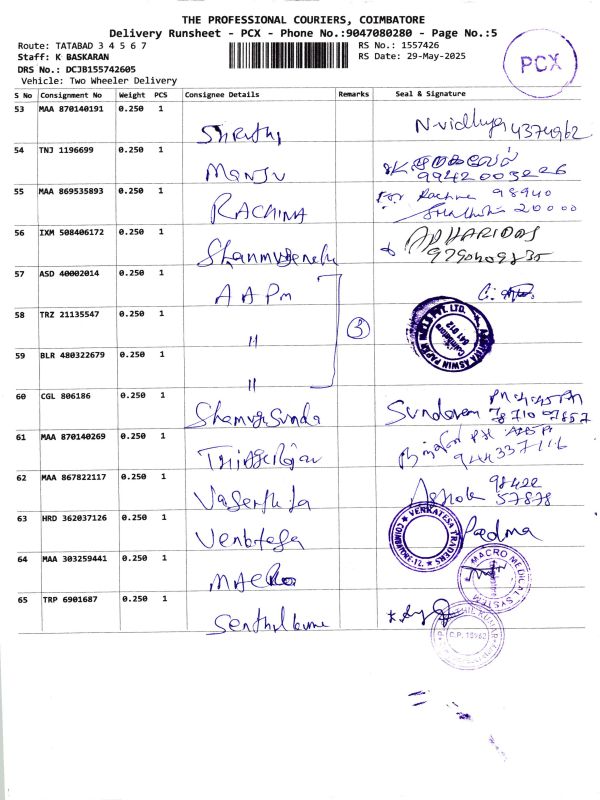 THE PROFESSIONAL COURIERS, COIMBATORE
Delivery Runsheet - PCX - Phone No.:9047080280 - Page No.:5
Route: TATABAD 3 4 5 6 7
Staff: K BASKARAN
DRS No.: DCJB155742605
Vehicle: Two Wheeler Delivery
RS No.: 1557426
RS Date: 29-May-2025
PCX
S No Consignment No Weight PCS Consignee Details Remarks Seal & Signature
53 MAA 870140191 0.250 1 Shruthi N-vidhya 4374962
54 TNJ 1196699 0.250 1 Manju
9942003226
55 MAA 869535893 0.250 1 RACHNA For Rachna 98940
20000
56 IXM 508406172 0.250 1 HARIDAS
57 ASD 40002014 0.250 1 AAPM
58 TRZ 21135547 0.250 1 " 3
ADITIYA ASWIN PAPER MILLS PVT. LTD.
Coimbatore
641 012
59 BLR 480322679 0.250 1 "
60 CGL 806186 0.250 1 ShamugSunda Sundaram
61 MAA 870140269 0.250 1
62 MAA 867822117 0.250 1 Ashok 98422
57878
63 HRD 362037126 0.250 1 Venktesa Padma
VENKATESA TRADERS
COIMBATORE-12.
64 MAA 303259441 0.250 1 MACRO
MACRO MEDICAL SYSTEM
65 TRP 6901687 0.250 1 Senthilkumar
C.P. 18962